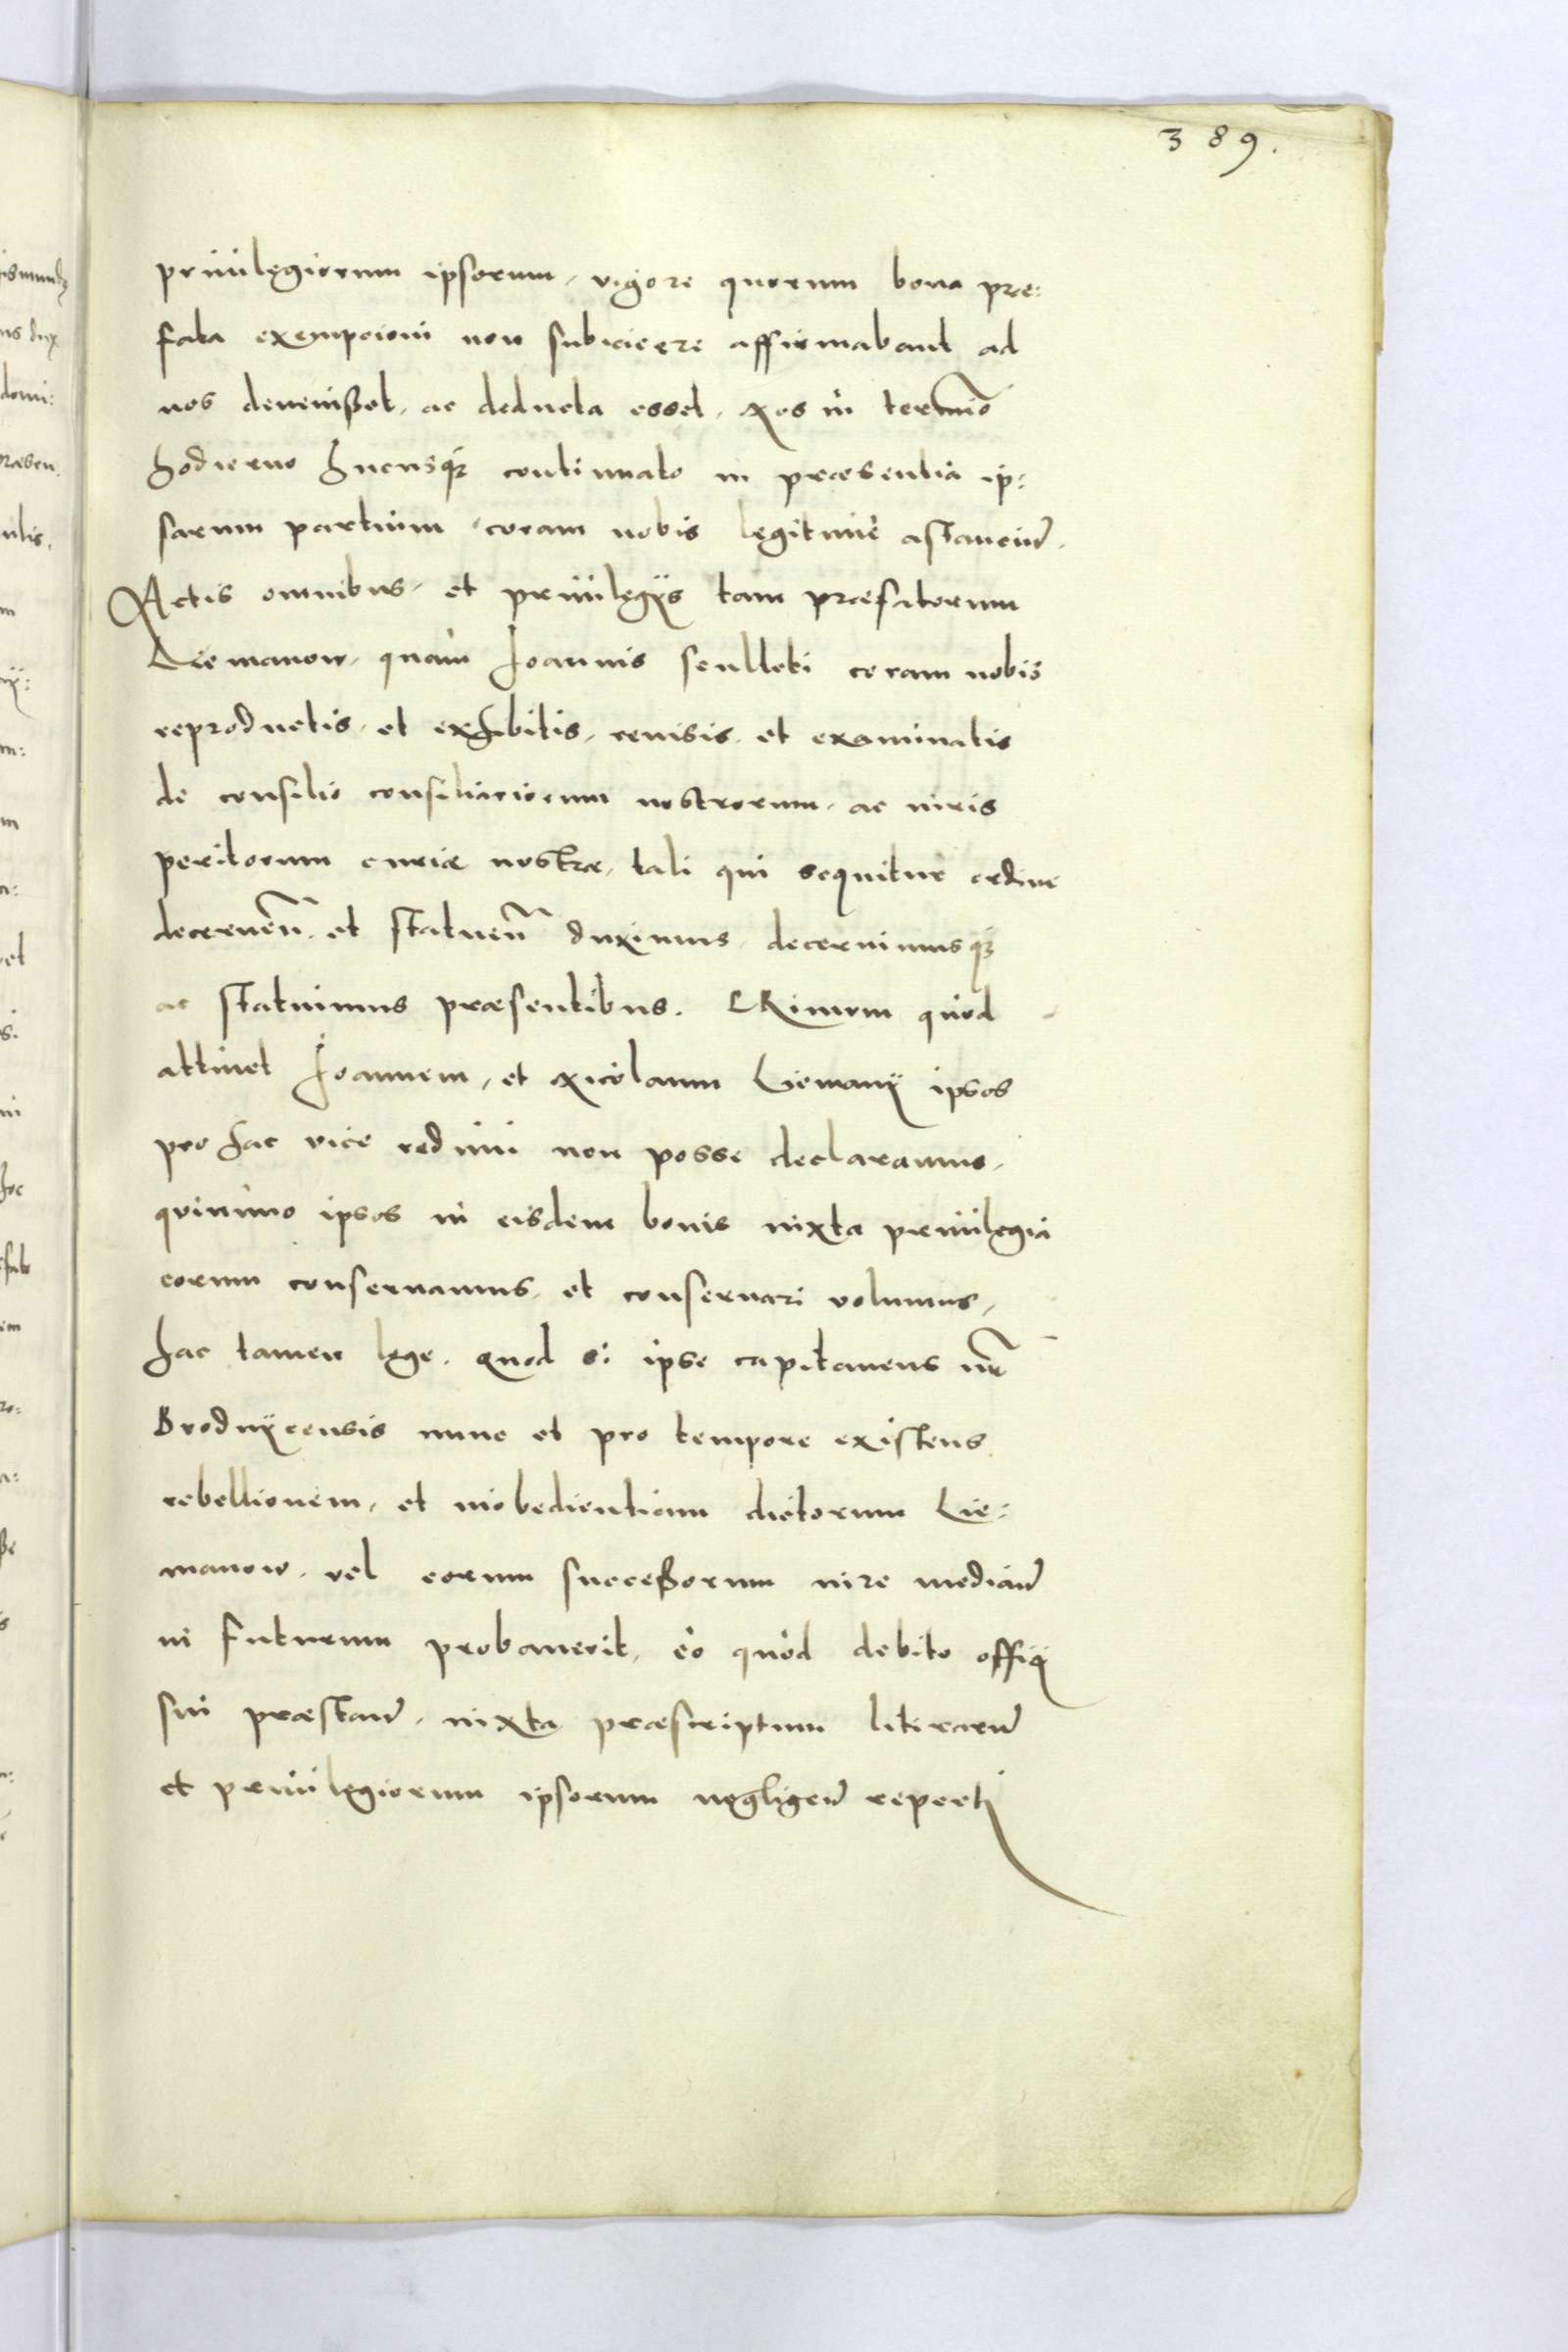 389.
priuilegiorum ipsorum, vigore quorum bona prae:
fata exempcioni non subiicere affirmabant ad
nos deuenisset, ac deducta esset, Nos in termino
hodierno hucusque continuato in praesentia ip:
sarum partium coram nobis legitime astanciũ.
Actis omnibus, et priuilegiis tam praefatorum
Liemanow, quàm Joannis sculteti coram nobis
reproductis, et exhibitis, reuisis, et examinatis
de consilio consiliariorum nostrorum, ac iuris
peritorum curiae nostrae, tali qui sequitur ordine
decernen̄ et statuen̄ duximus, decernimusque
ac statuimus praesentibus. Primum quòd
attinet Joannem, et Nicolaum Liemany ipsos
pro hac vice redimi non posse declaramus,
quinimo ipsos in eisdem bonis iuxta priuilegia
eorum conseruamus, et conseruari volumus,
hac tamen lege, quod si ipse capitaneus nr̄
Brodnicensis nunc et pro tempore existens
rebellionem, et inobedientiam dictorum Lie:
manow, vel eorum successorum iure median̄
in futurum probauerit, eò quòd debito officij
sui praestan̄, iuxta praescriptum literarũ
et priuilegiorum ipsorum negligen̄ reperti